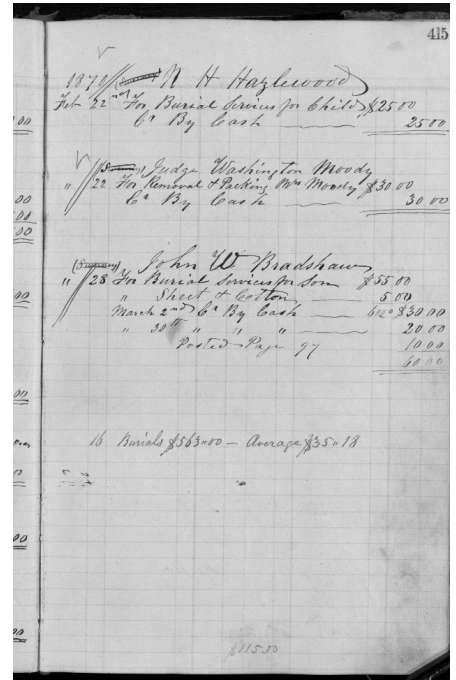 415
1870 N H Hazlewood
Feb 22nd For Burial Services for Child $25 00
Cr By Cash 25 00
Judge Washington Moody
" 22 For Removal & Packing Mrs Moody $30 00
Cr By Cash 30 00
John W Bradshaw
" 28 For Burial Services for Son $55.00
" Sheet & Cotton 5 00
March 2nd Cr By Cash $30.00
" 30th Cr " " 20.00
Posted Page 97 10 00
60 00
16 Burials $563.00 - Average $35 " 18
$115 50